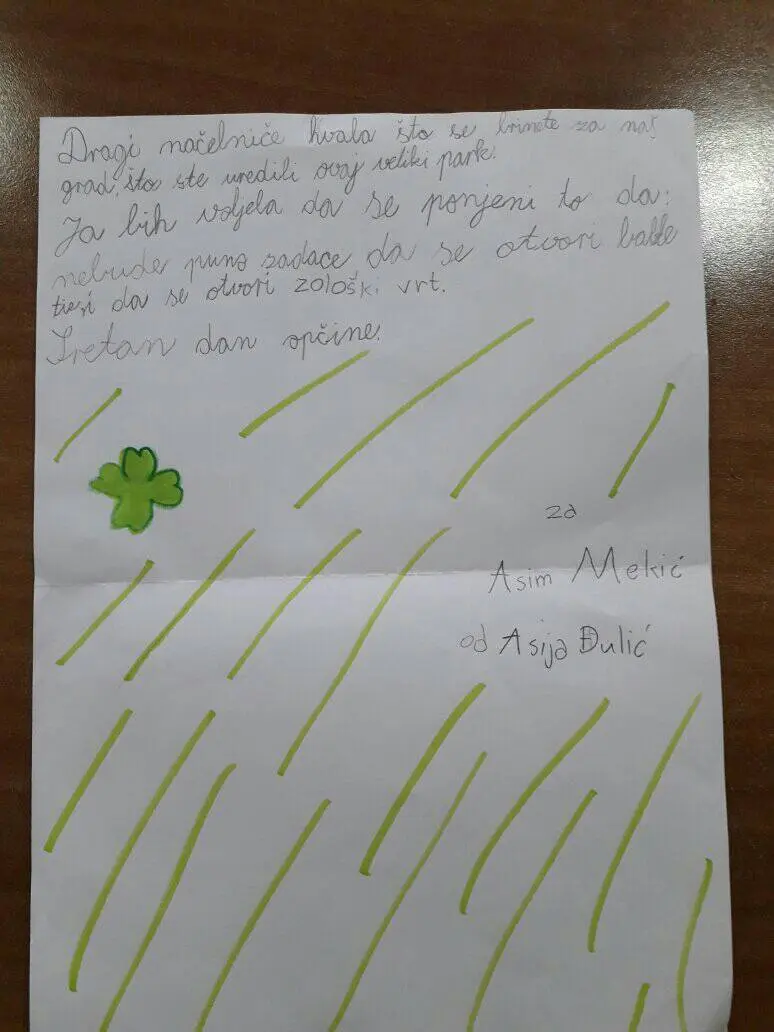 Dragi načelniče hvala što se brinete za naš
grad, što ste uredili ovaj veliki park.
Ja bih voljela da se ponjeni to da:
nebude puno zadaće da se otvori
da se otvori zološki vrt.
Sretan dan opčine.
za
Asim Mekić
od Asija Đulić